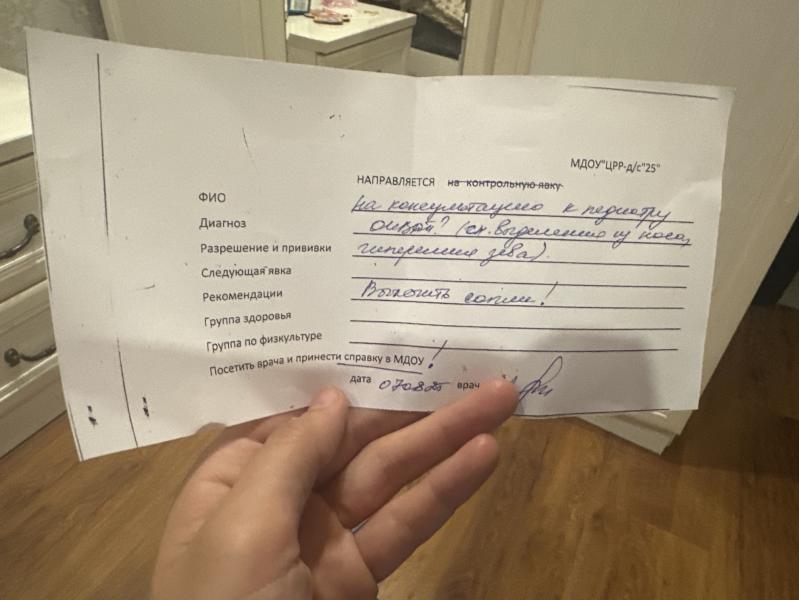 МДОУ"ЦРР-д/с"25"
НАПРАВЛЯЕТСЯ на контрольную явку
ФИО на консультацию к педиатру
Диагноз ОРВИ? (сл. выделения из носа,
Разрешение и прививки гиперемия зева).
Следующая явка
Рекомендации Вылечить сопли!
Группа здоровья
Группа по физкультуре
Посетить врача и принести справку в МДОУ!
дата 070825 врач